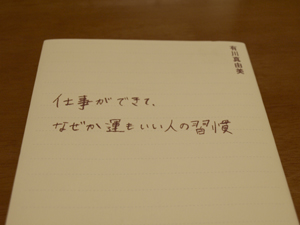 有川真由美
仕事ができて、
なぜか運もいい人の習慣